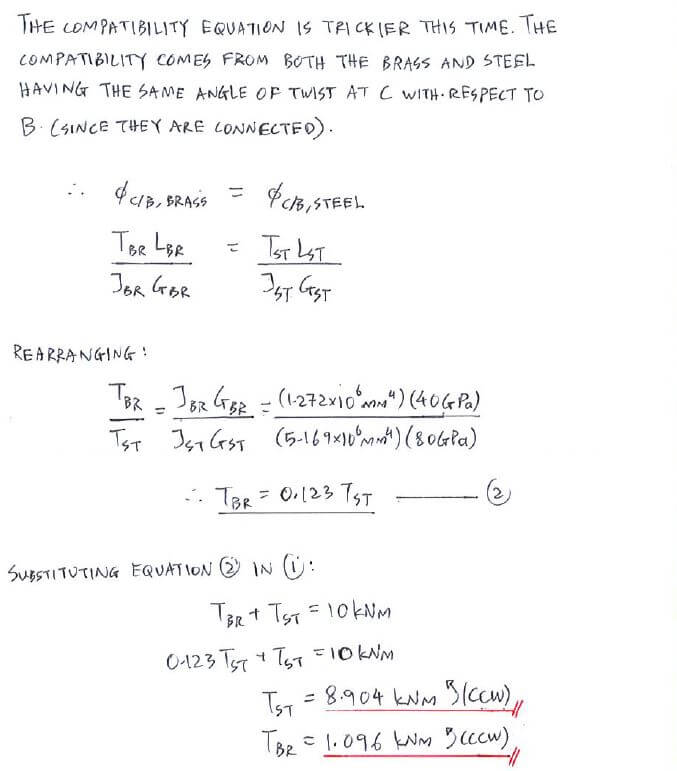 THE COMPATIBILITY EQUATION IS TRICKIER THIS TIME. THE
COMPATIBILITY COMES FROM BOTH THE BRASS AND STEEL
HAVING THE SAME ANGLE OF TWIST AT C WITH RESPECT TO
B. (SINCE THEY ARE CONNECTED).
∴ ϕ_C/B, BRASS = ϕ_C/B, STEEL
T_BR L_BR / J_BR G_BR = T_ST L_ST / J_ST G_ST
REARRANGING:
T_BR / T_ST = J_BR G_BR / J_ST G_ST = (1.272×10⁶ MM⁴)(40GPa) / (5.169×10⁶ MM⁴)(80GPa)
∴ T_BR = 0.123 T_ST ——— ②
SUBSTITUTING EQUATION ② IN ①:
T_BR + T_ST = 10 kNM
0.123 T_ST + T_ST = 10 kNM
T_ST = 8.904 kNM (CCW)
T_BR = 1.096 kNM (CCW)